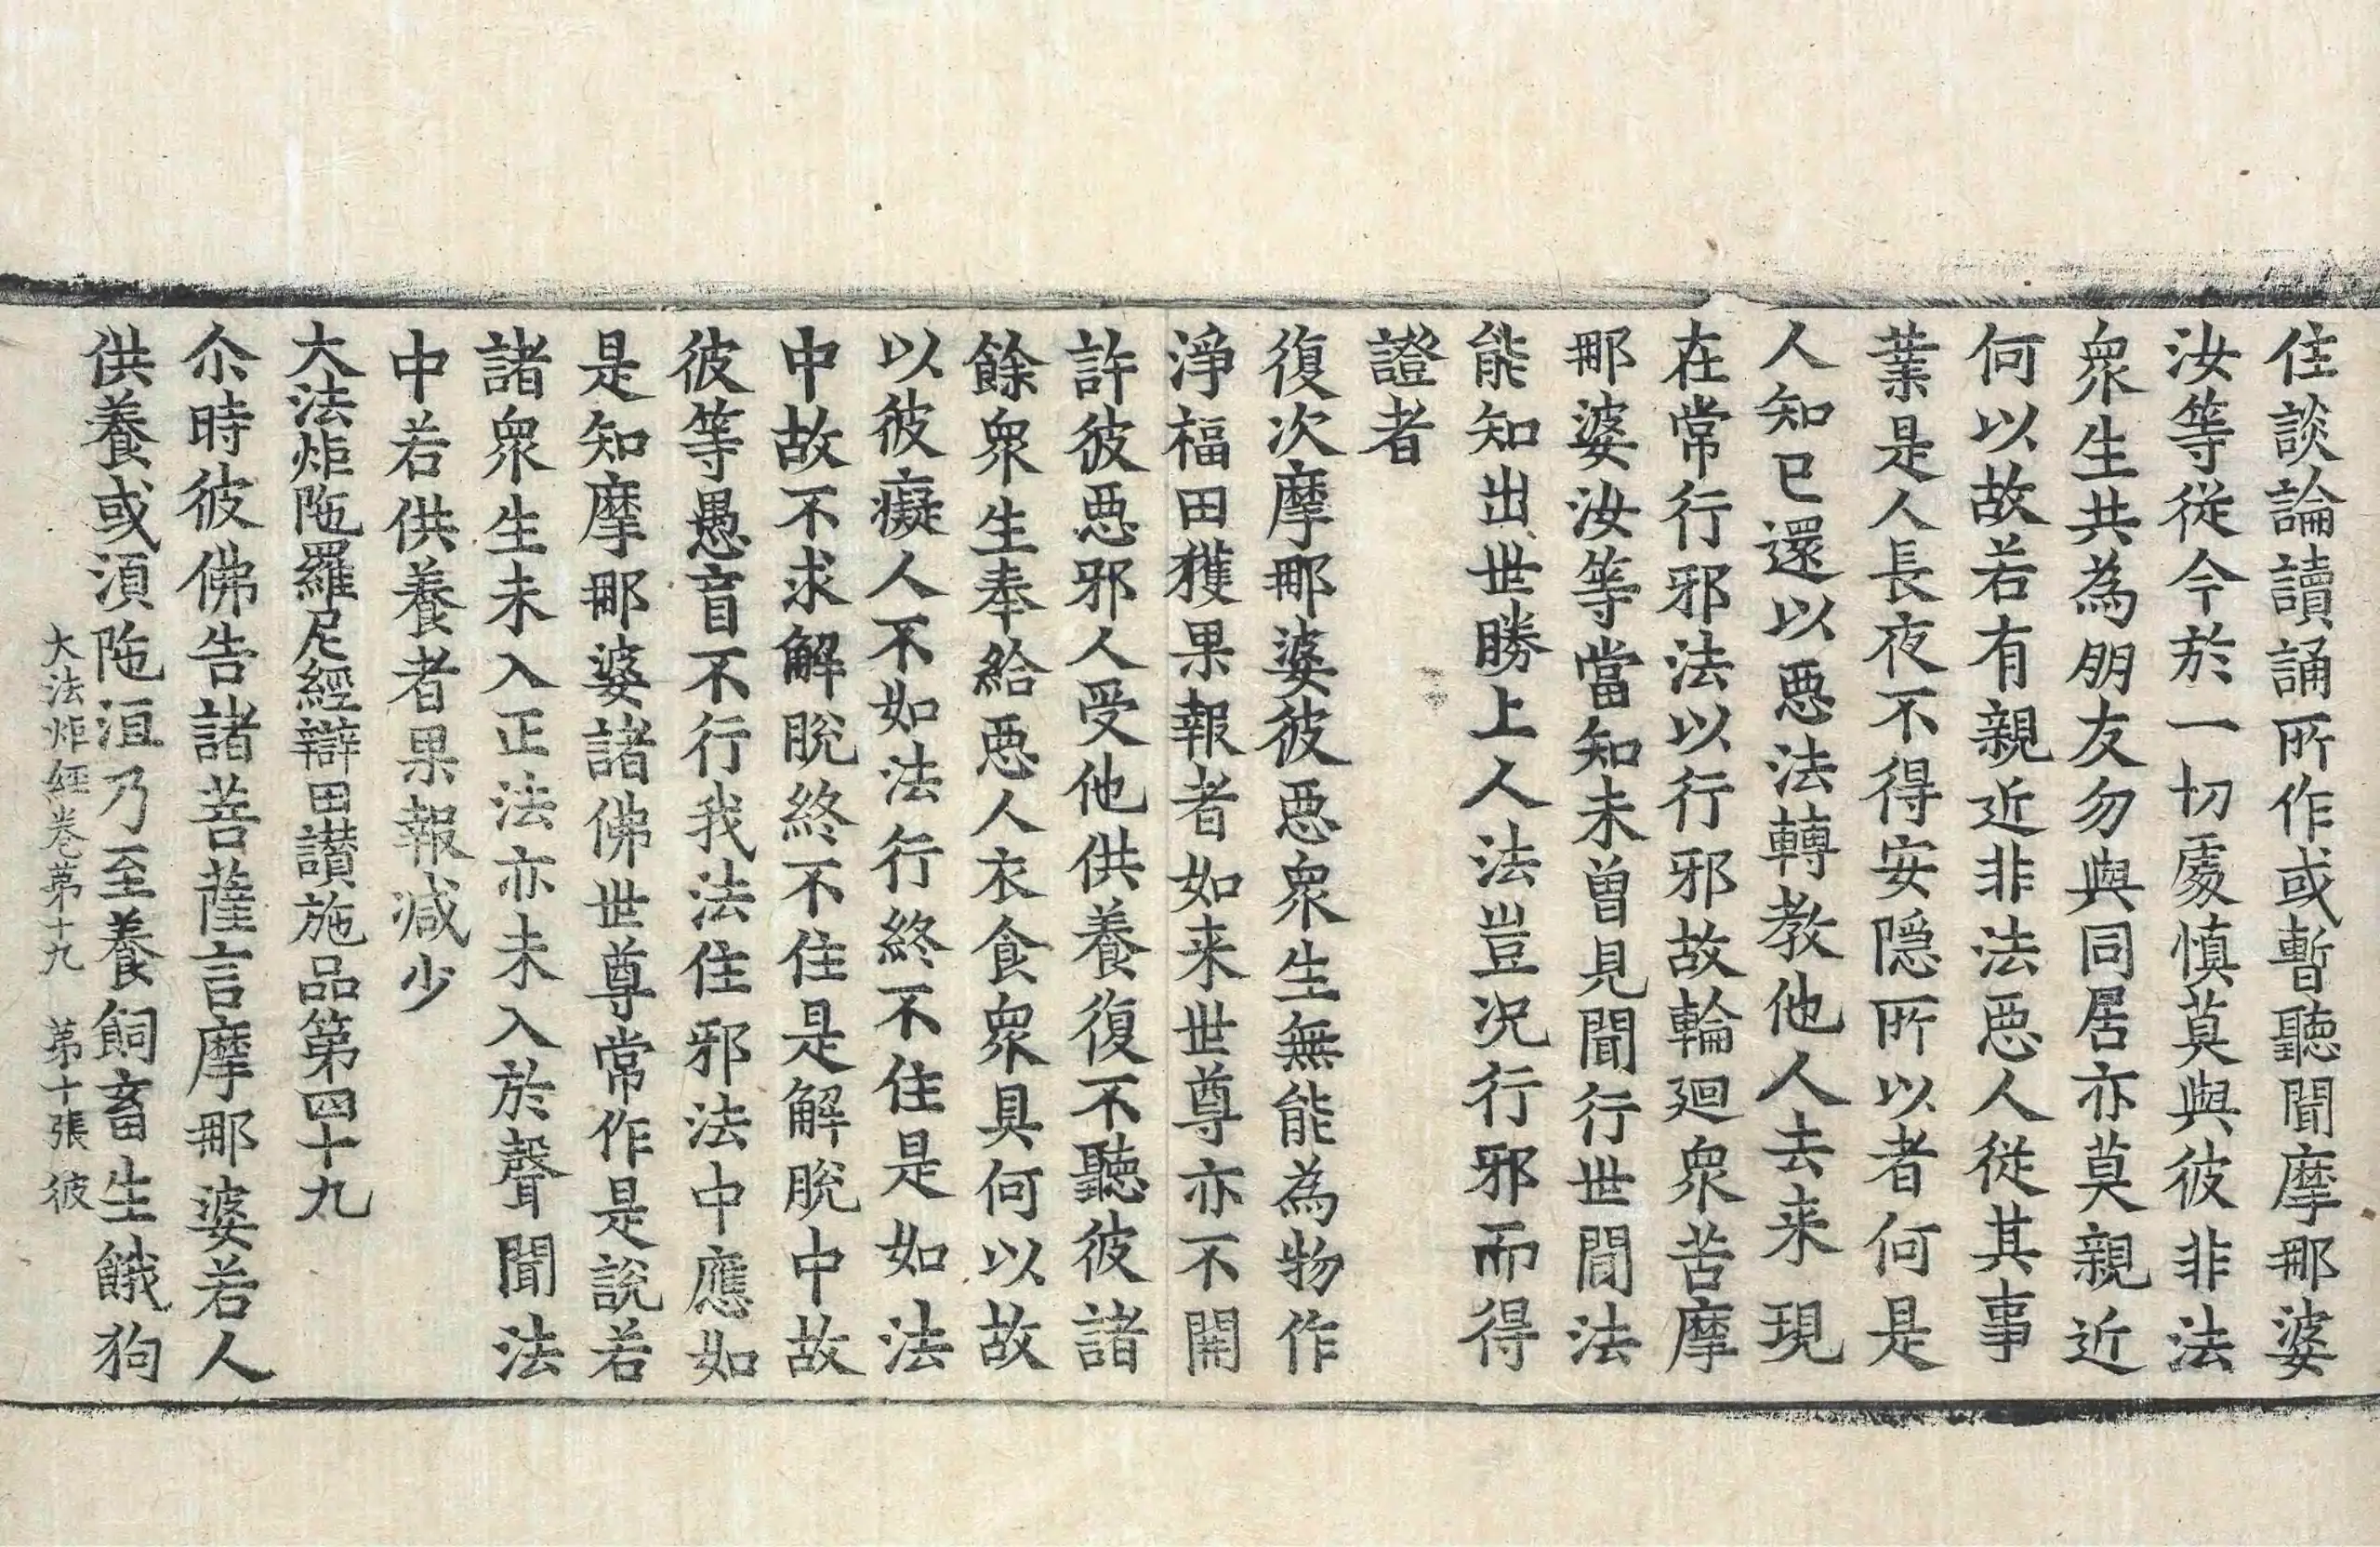 住談論讀誦所作或暫聽聞摩那婆
汝等從今於一切處慎莫與彼非法
衆生共為朋友勿與同居亦莫親近
何以故若有親近非法惡人從其事
業是人長夜不得安隱所以者何是
人知已還以惡法轉教他人去来現
在常行邪法以行邪故輪迴衆苦摩
那婆汝等當知未曾見聞行世間法
能知出世勝上人法豈況行邪而得
證者
復次摩那婆彼惡衆生無能為物作
淨福田獲果報者如来世尊亦不開
許彼惡邪人受他供養復不聽彼諸
餘衆生奉給惡人衣食衆具何以故
以彼癡人不如法行終不住是如法
中故不求解脫終不住是解脫中故
彼等愚盲不行我法住邪法中應如
是知摩那婆諸佛世尊常作是說若
諸衆生未入正法亦未入於聲聞法
中若供養者果報减少
大法炬陁羅尼經辯田讃施品第四十九
尒時彼佛告諸菩薩言摩那婆若人
供養或湏陁洹乃至養飼畜生餓狗
大法炬經卷第十九　第十張　彼